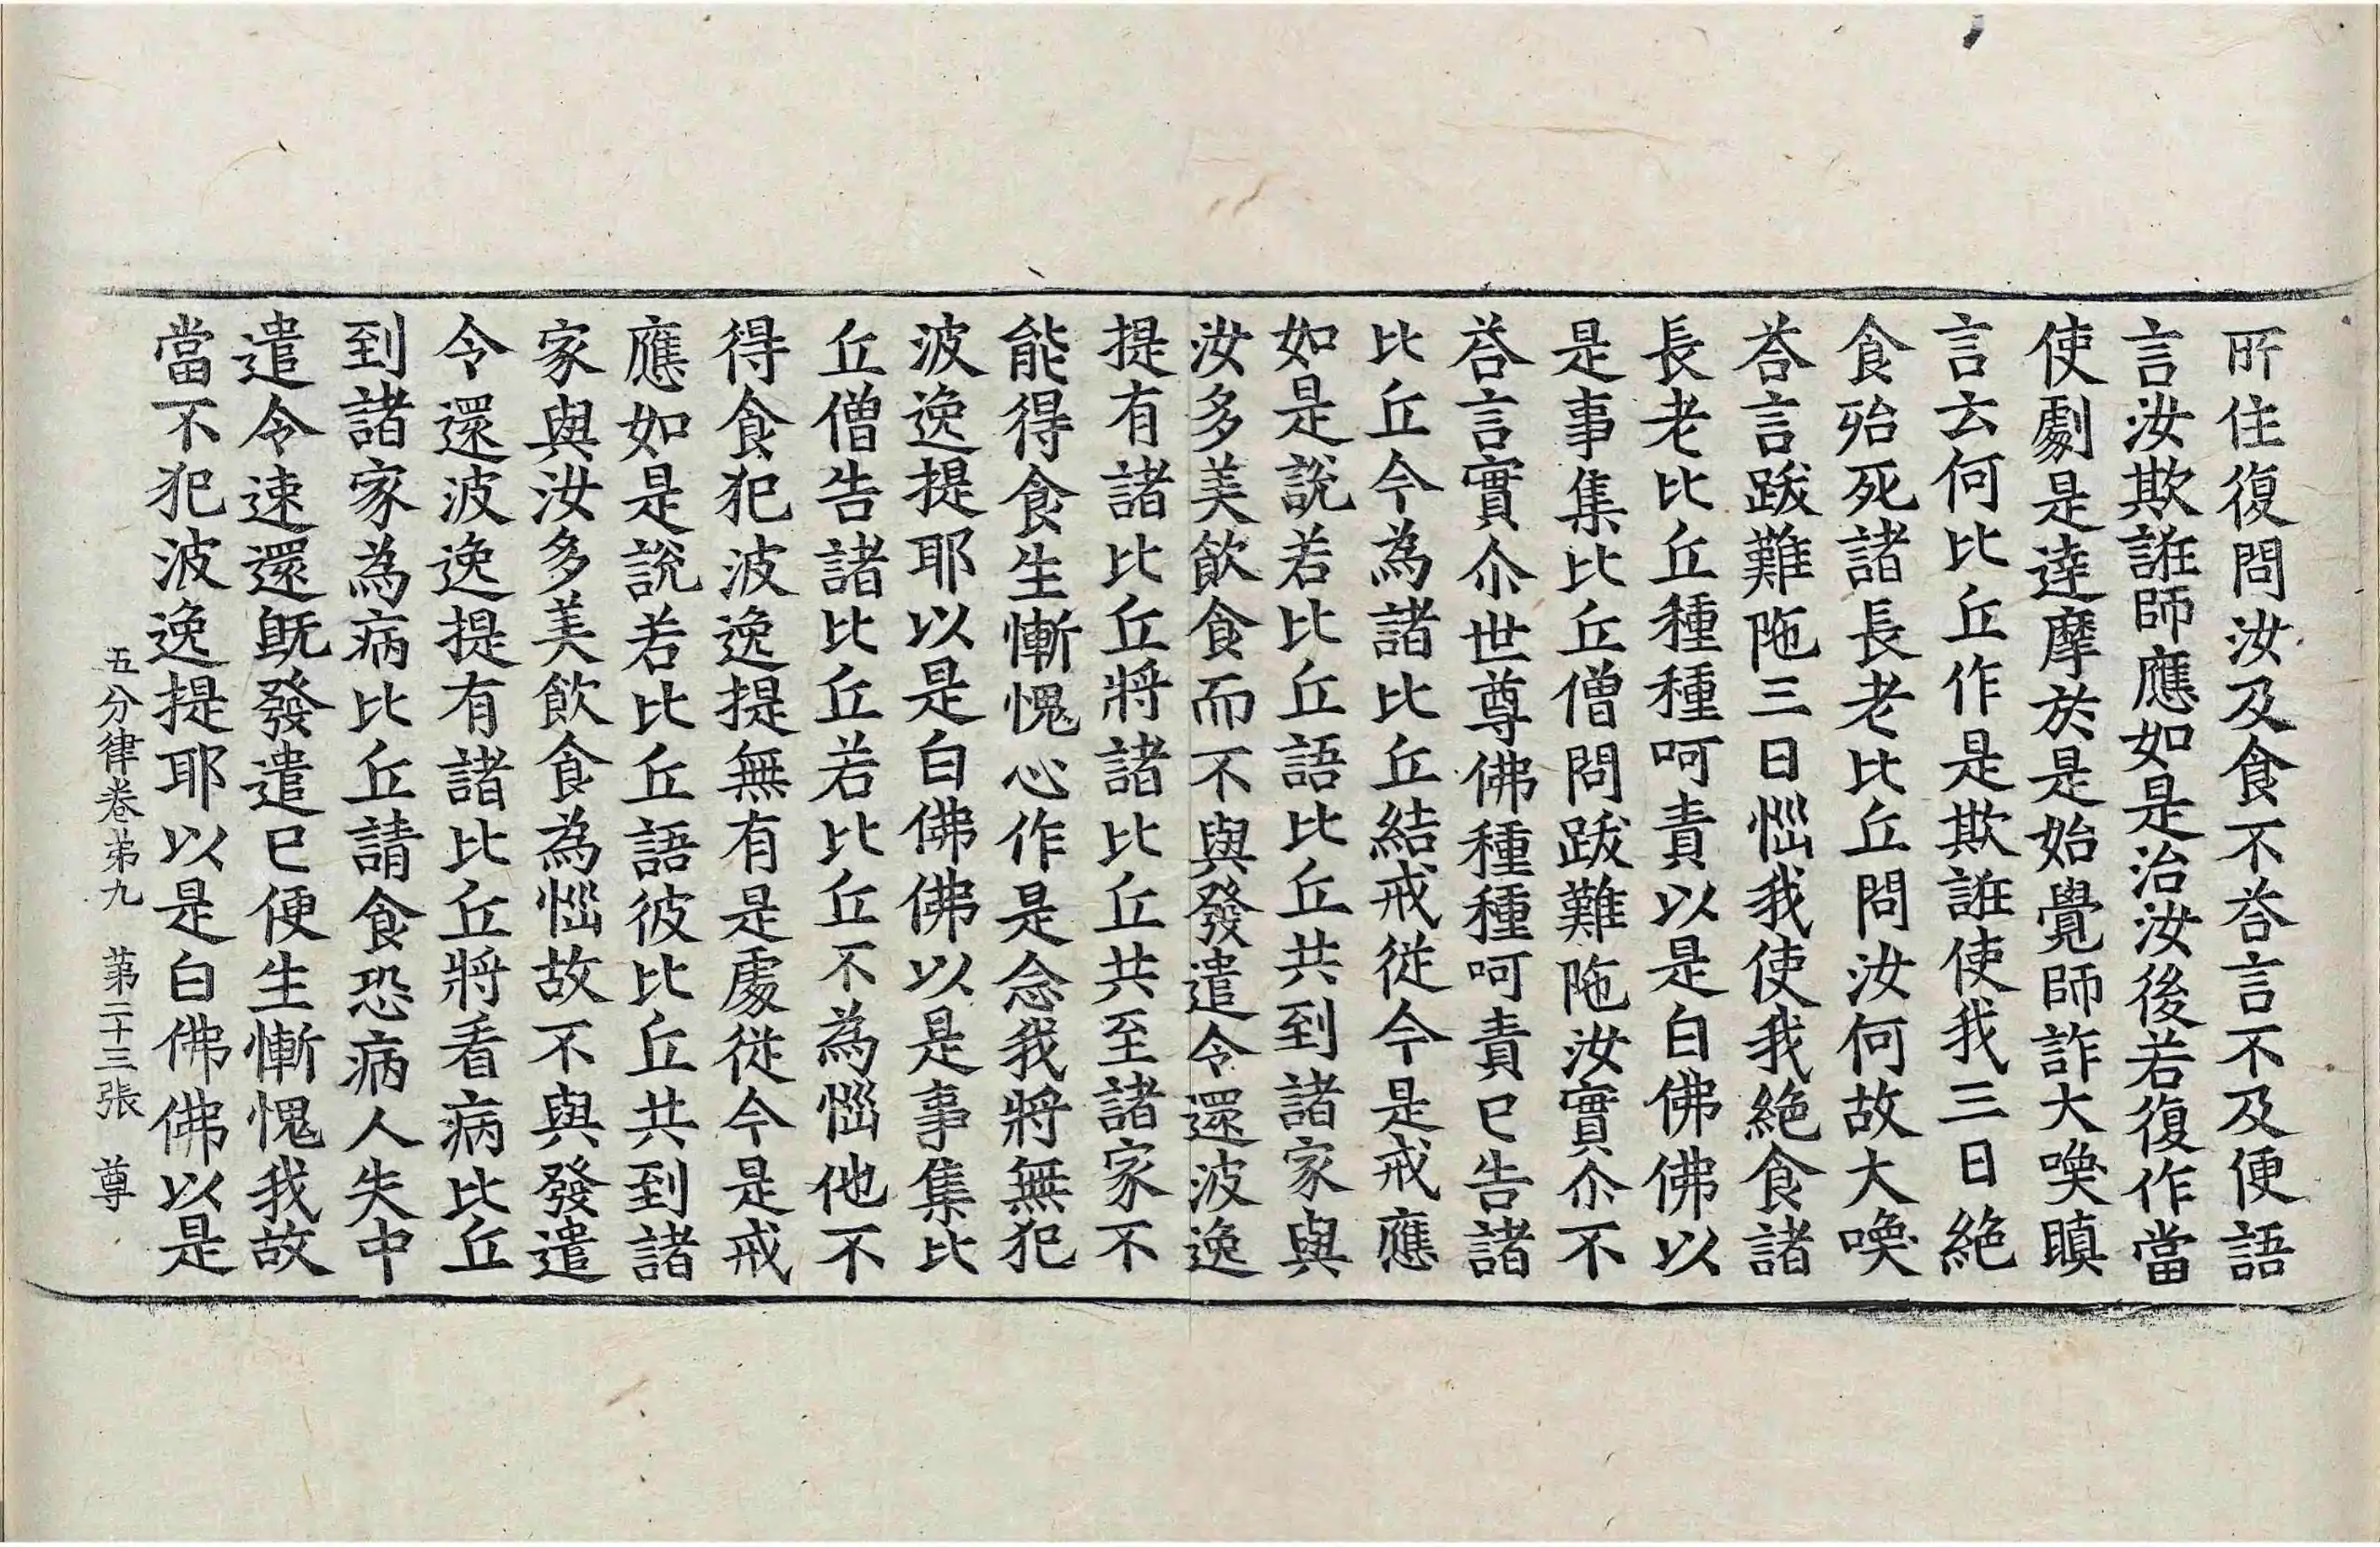 所住復問汝及食不荅言不及便語
言汝欺誑師應如是治汝後若復作當
使劇是達摩於是始覺師詐大喚瞋
言云何比丘作是欺誑使我三日絶
食殆死諸長老比丘問汝何故大喚
荅言跋難陁三日惱我使我絶食諸
長老比丘種種呵責以是白佛佛以
是事集比丘僧問跋難陁汝實尒不
荅言實尒世尊佛種種呵責已告諸
比丘今為諸比丘結戒從今是戒應
如是說若比丘語比丘共到諸家與
汝多美飲食而不與發遣令還波逸
提有諸比丘將諸比丘共至諸家不
能得食生慚愧心作是念我將無犯
波逸提耶以是白佛佛以是事集比
丘僧告諸比丘若比丘不為惱他不
得食犯波逸提無有是處從今是戒
應如是說若比丘語彼比丘共到諸
家與汝多美飲食為惱故不與發遣
令還波逸提有諸比丘將看病比丘
到諸家為病比丘請食恐病人失中
遣令速還旣發遣已便生慚愧我故
當不犯波逸提耶以是白佛佛以是
五分律卷苐九 苐二十三張 尊